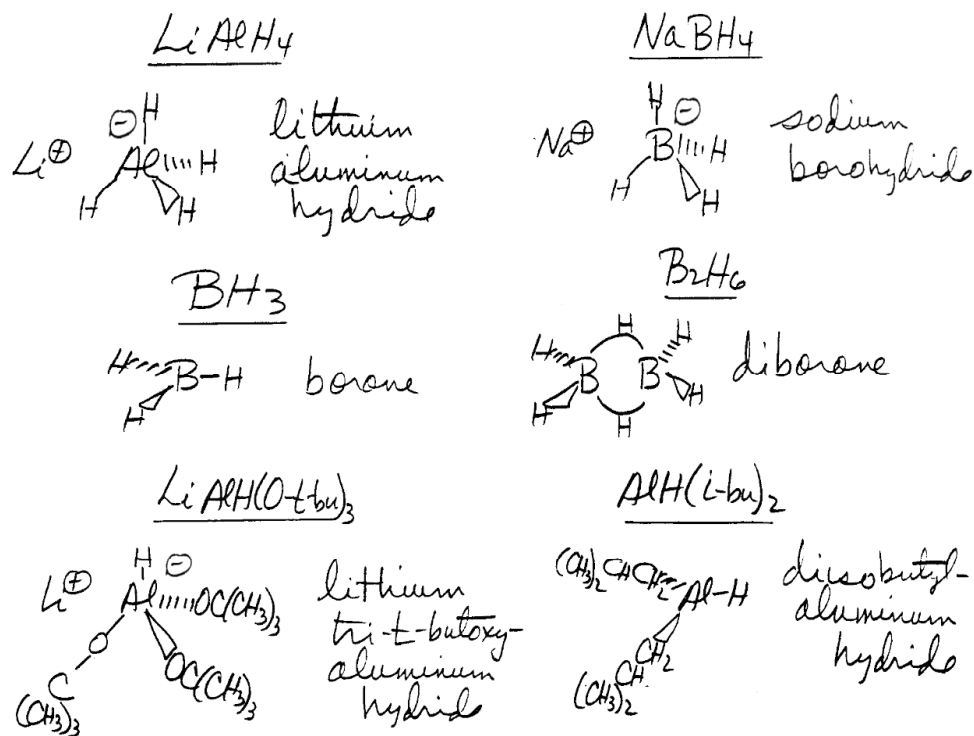 LiAlH4
NaBH4
H
⊖
Li⊕ Al H
H H
lithuim
aluminum
hydride
H
⊖
Na⊕ B H
H H
sodium
borohydride
BH3
B2H6
H
B-H
H
borone
H
H H
B B
H H
H
diborone
LiAlH(O-t-bu)3
AlH(i-bu)2
H
⊖
Li⊕ Al OC(CH3)3
O
C OC(CH3)3
(CH3)3
lithium
tri-t-butoxy-
aluminum
hydride
(CH3)2CHCH2
Al-H
CH2
CH
(CH3)2
diisobutyl-
aluminum
hydride